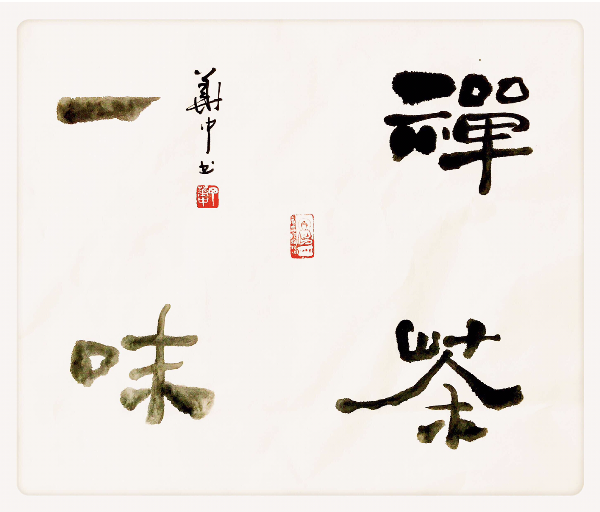 禪茶
一味
華中书